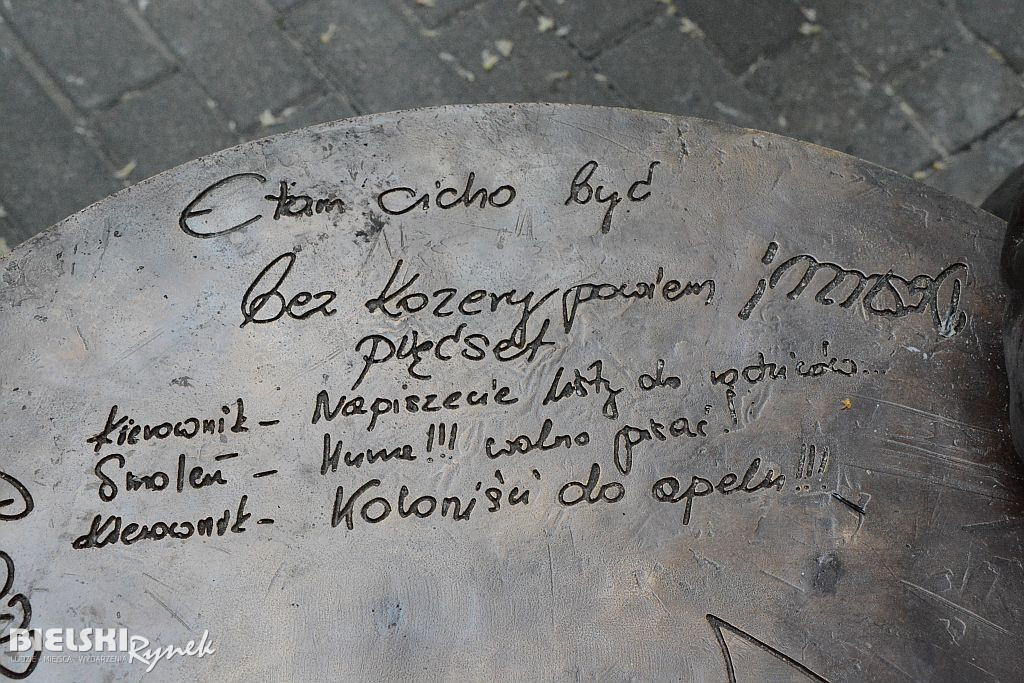 E tam cicho być
Bez Kozery powiem
pięćset
Kierownik - Napiszecie listy do rodziców...
Smoleń - Huma!!! wolno pisać!
Kierownik - Koloniści do apelu!!!
BIELSKI Rynek
LUDZIE MIEJSCA WYDARZENIA